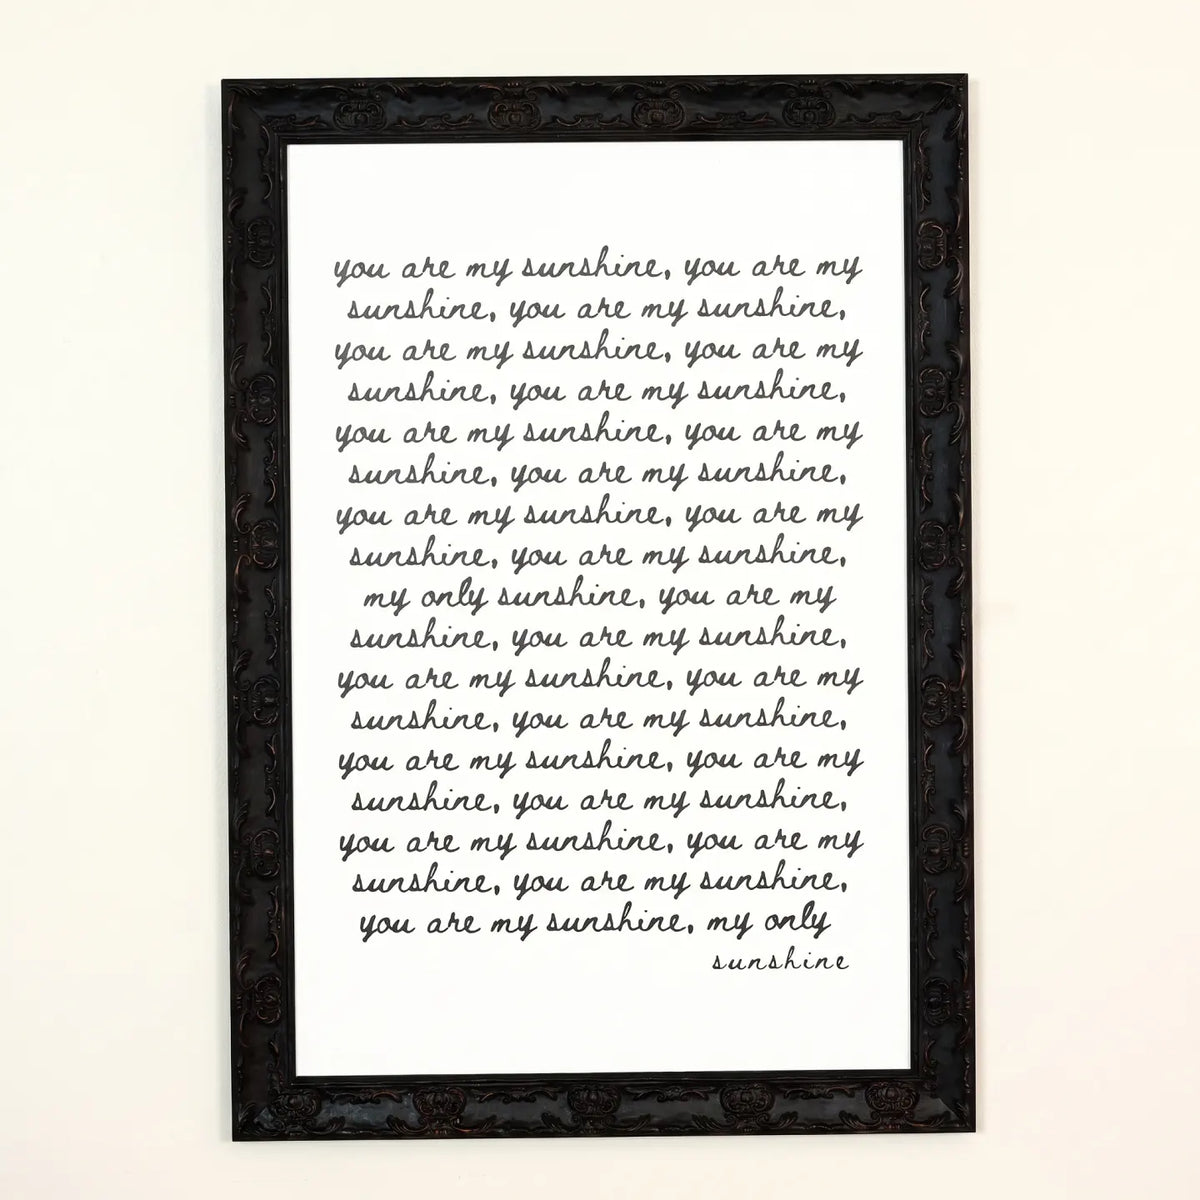 you are my sunshine, you are my
sunshine, you are my sunshine,
you are my sunshine, you are my
sunshine, you are my sunshine,
you are my sunshine, you are my
sunshine, you are my sunshine,
you are my sunshine, you are my
sunshine, you are my sunshine,
my only sunshine, you are my
sunshine, you are my sunshine,
you are my sunshine, you are my
sunshine, you are my sunshine,
you are my sunshine, you are my
sunshine, you are my sunshine,
you are my sunshine, you are my
sunshine, you are my sunshine,
you are my sunshine, my only
sunshine